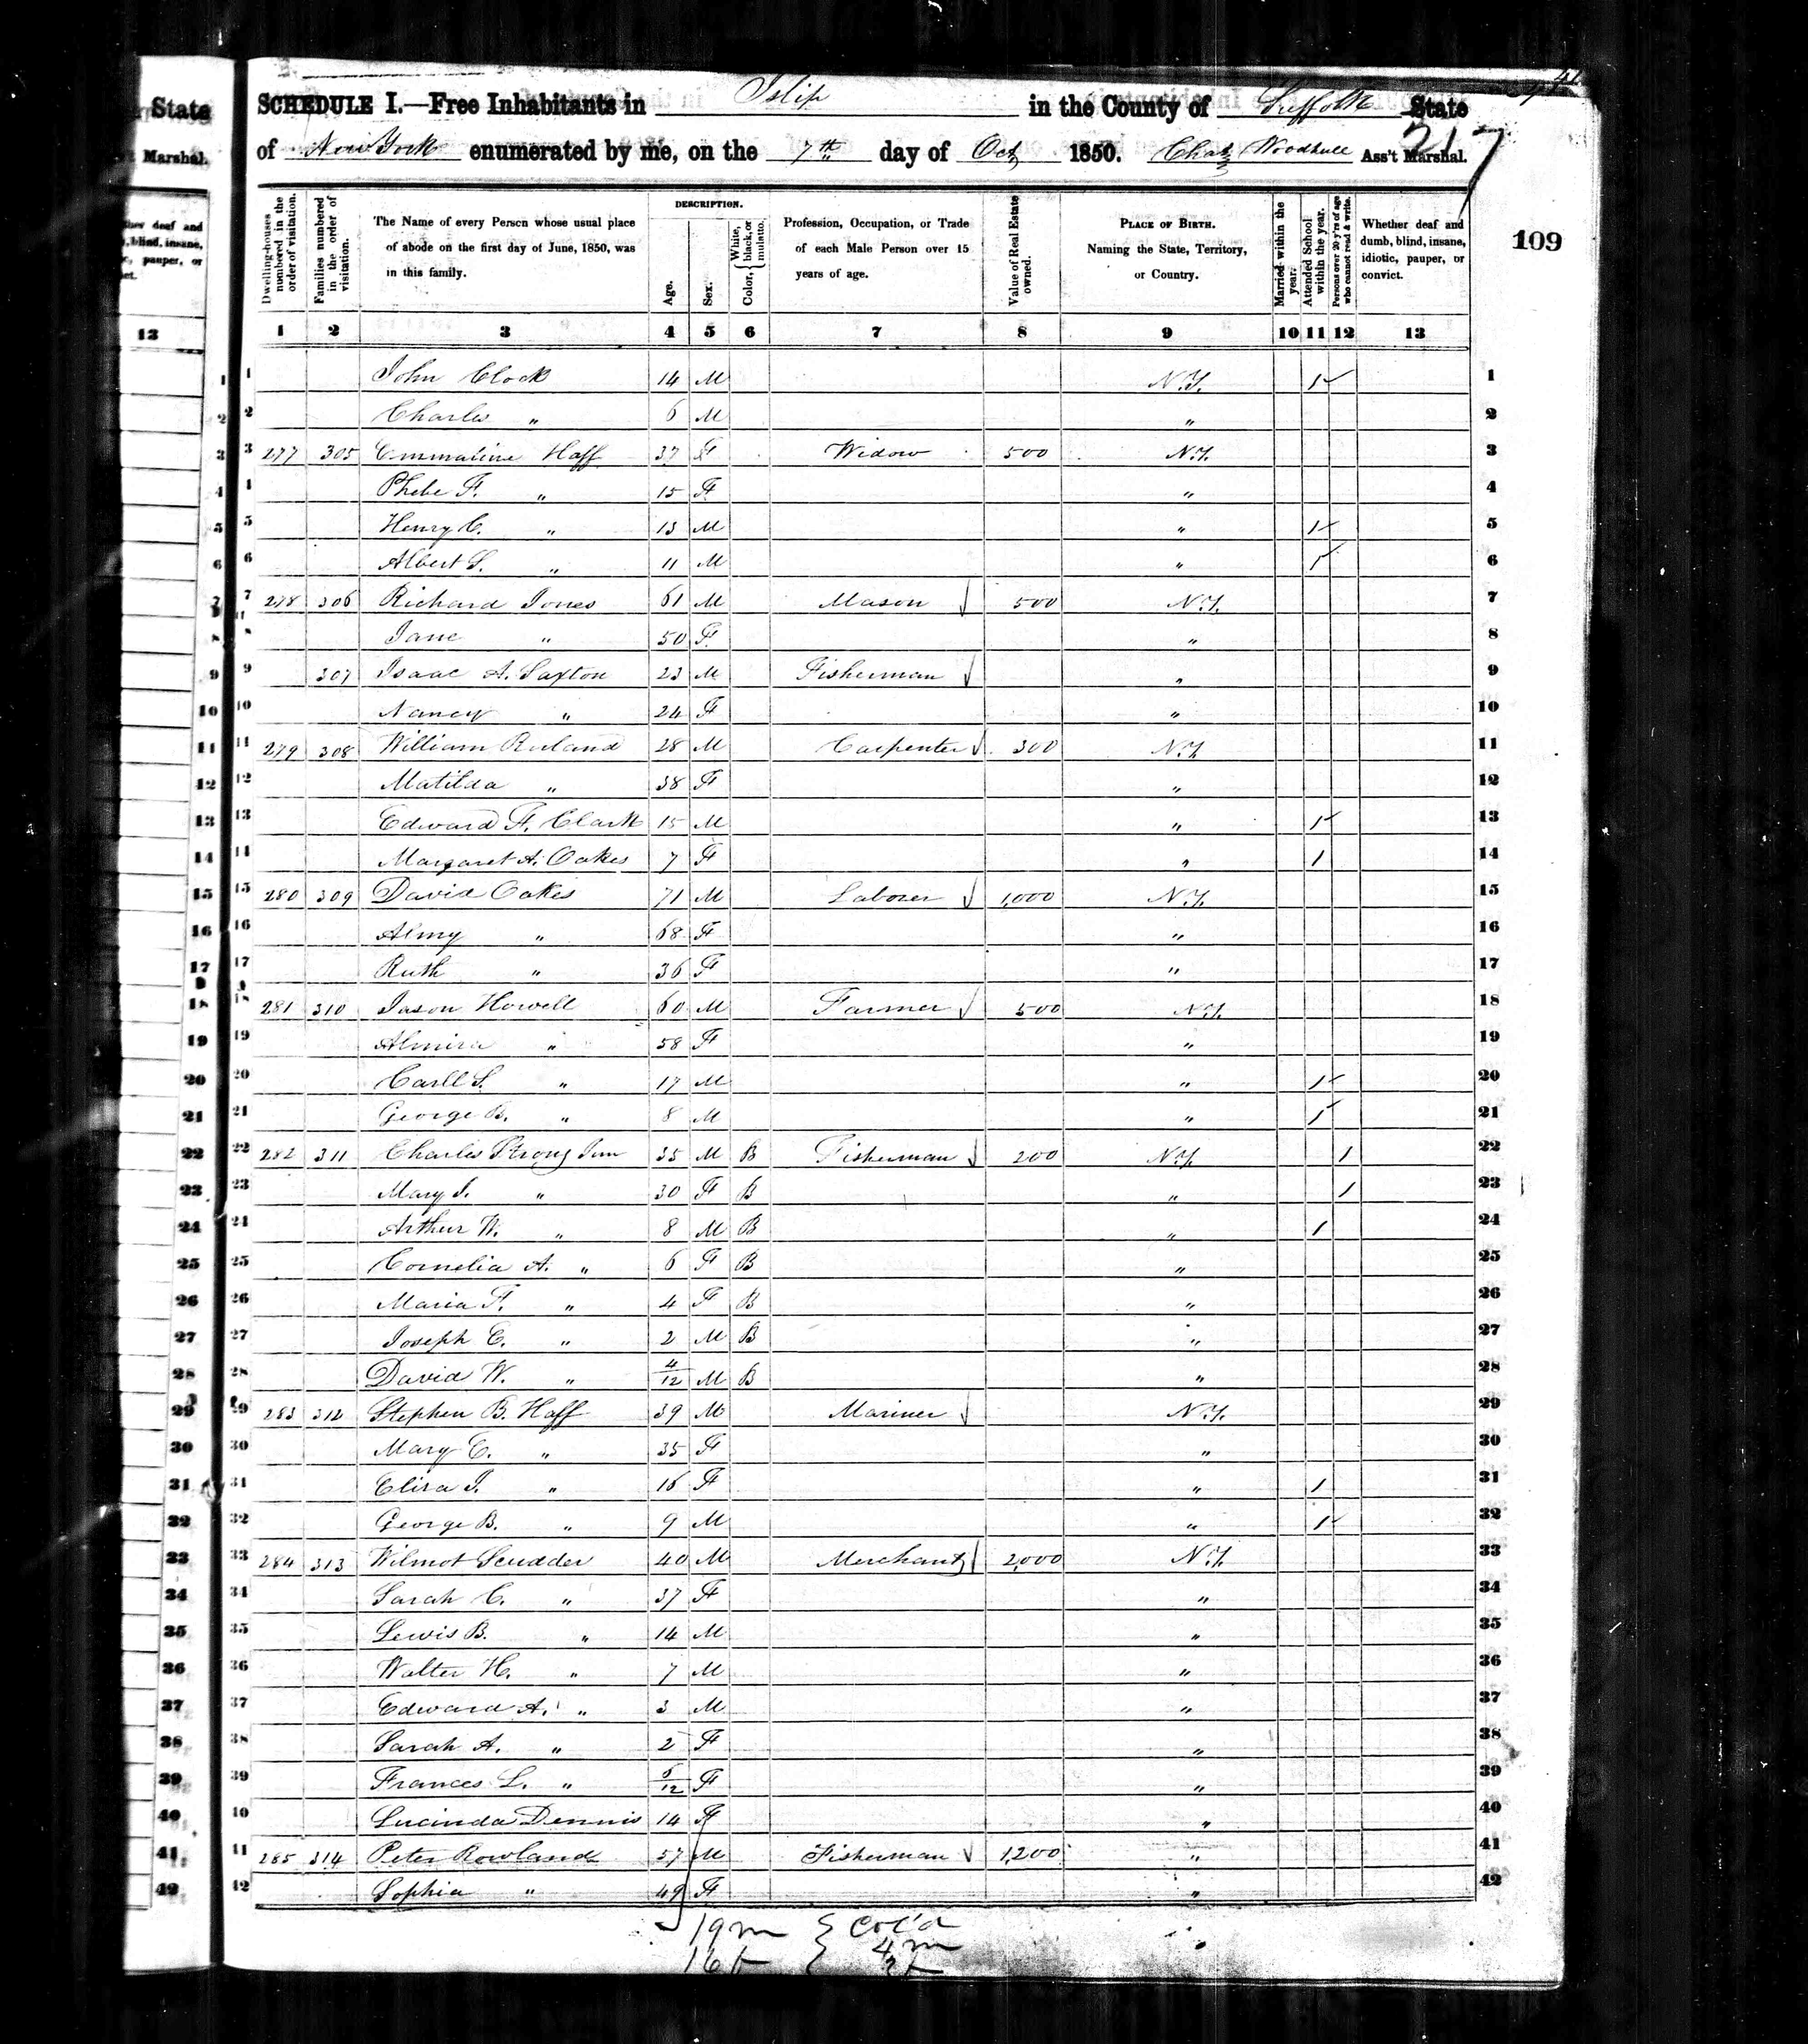 SCHEDULE I.—Free Inhabitants in Islip in the County of Suffolk State
of New York enumerated by me, on the 7th day of Oct 1850. Chas Woodhull Ass't Marshal.
317
109
State
Marshal.
DESCRIPTION.
Dwelling-houses numbered in the order of visitation.
Families numbered in the order of visitation.
The Name of every Person whose usual place of abode on the first day of June, 1850, was in this family.
Age.
Sex.
Color, { White, black, or mulatto.
Profession, Occupation, or Trade of each Male Person over 15 years of age.
Value of Real Estate owned.
PLACE OF BIRTH. Naming the State, Territory, or Country.
Married within the year.
Attended School within the year.
Persons over 20 y'rs of age who cannot read & write.
Whether deaf and dumb, blind, insane, idiotic, pauper, or convict.
1 2 3 4 5 6 7 8 9 10 11 12 13
1 John Clock 14 M N.Y. 1 1
2 Charles " 6 M " 2
3 277 305 Emmaline Haff 37 F Widow 500 N.Y. 3
4 Phebe F. " 15 F " 4
5 Henry C. " 13 M " 1 5
6 Albert S. " 11 M " 1 6
7 278 306 Richard Jones 61 M Mason 500 N.Y. 7
8 Jane " 50 F " 8
9 307 Isaac A. Saxton 23 M Fisherman " 9
10 Nancy " 24 F " 10
11 279 308 William Ruland 28 M Carpenter 300 N.Y. 11
12 Matilda " 38 F " 12
13 Edward F. Clark 15 M " 1 13
14 Margaret A. Oakes 7 F " 1 14
15 280 309 David Oakes 71 M Laborer 1,000 N.Y. 15
16 Almy " 68 F " 16
17 Ruth " 36 F " 17
18 281 310 Jason Howell 60 M Farmer 500 N.Y. 18
19 Almira " 58 F " 19
20 Carll S. " 17 M " 1 20
21 George B. " 8 M " 1 21
22 282 311 Charles Strong Jun 35 M B Fisherman 200 N.Y. 1 22
23 Mary J. " 30 F B " 1 23
24 Arthur W. " 8 M B " 1 24
25 Cornelia A. " 6 F B " 25
26 Maria F. " 4 F B " 26
27 Joseph C. " 2 M B " 27
28 David W. " 4/12 M B " 28
29 283 312 Stephen B. Haff 39 M Mariner N.Y. 29
30 Mary E. " 35 F " 30
31 Eliza J. " 16 F " 1 31
32 George B. " 9 M " 1 32
33 284 313 Wilmot Scudder 40 M Merchant 2,000 N.Y. 33
34 Sarah C. " 37 F " 34
35 Lewis B. " 14 M " 35
36 Walter H. " 7 M " 36
37 Edward A. " 3 M " 37
38 Sarah A. " 2 F " 38
39 Frances L. " 6/12 F " 39
40 Lucinda Dennis 14 F " 40
41 285 314 Peter Rowland 57 M Fisherman 1,200 " 41
42 Sophia " 49 F " 42
19 m } Col'd
16 f } 4 m